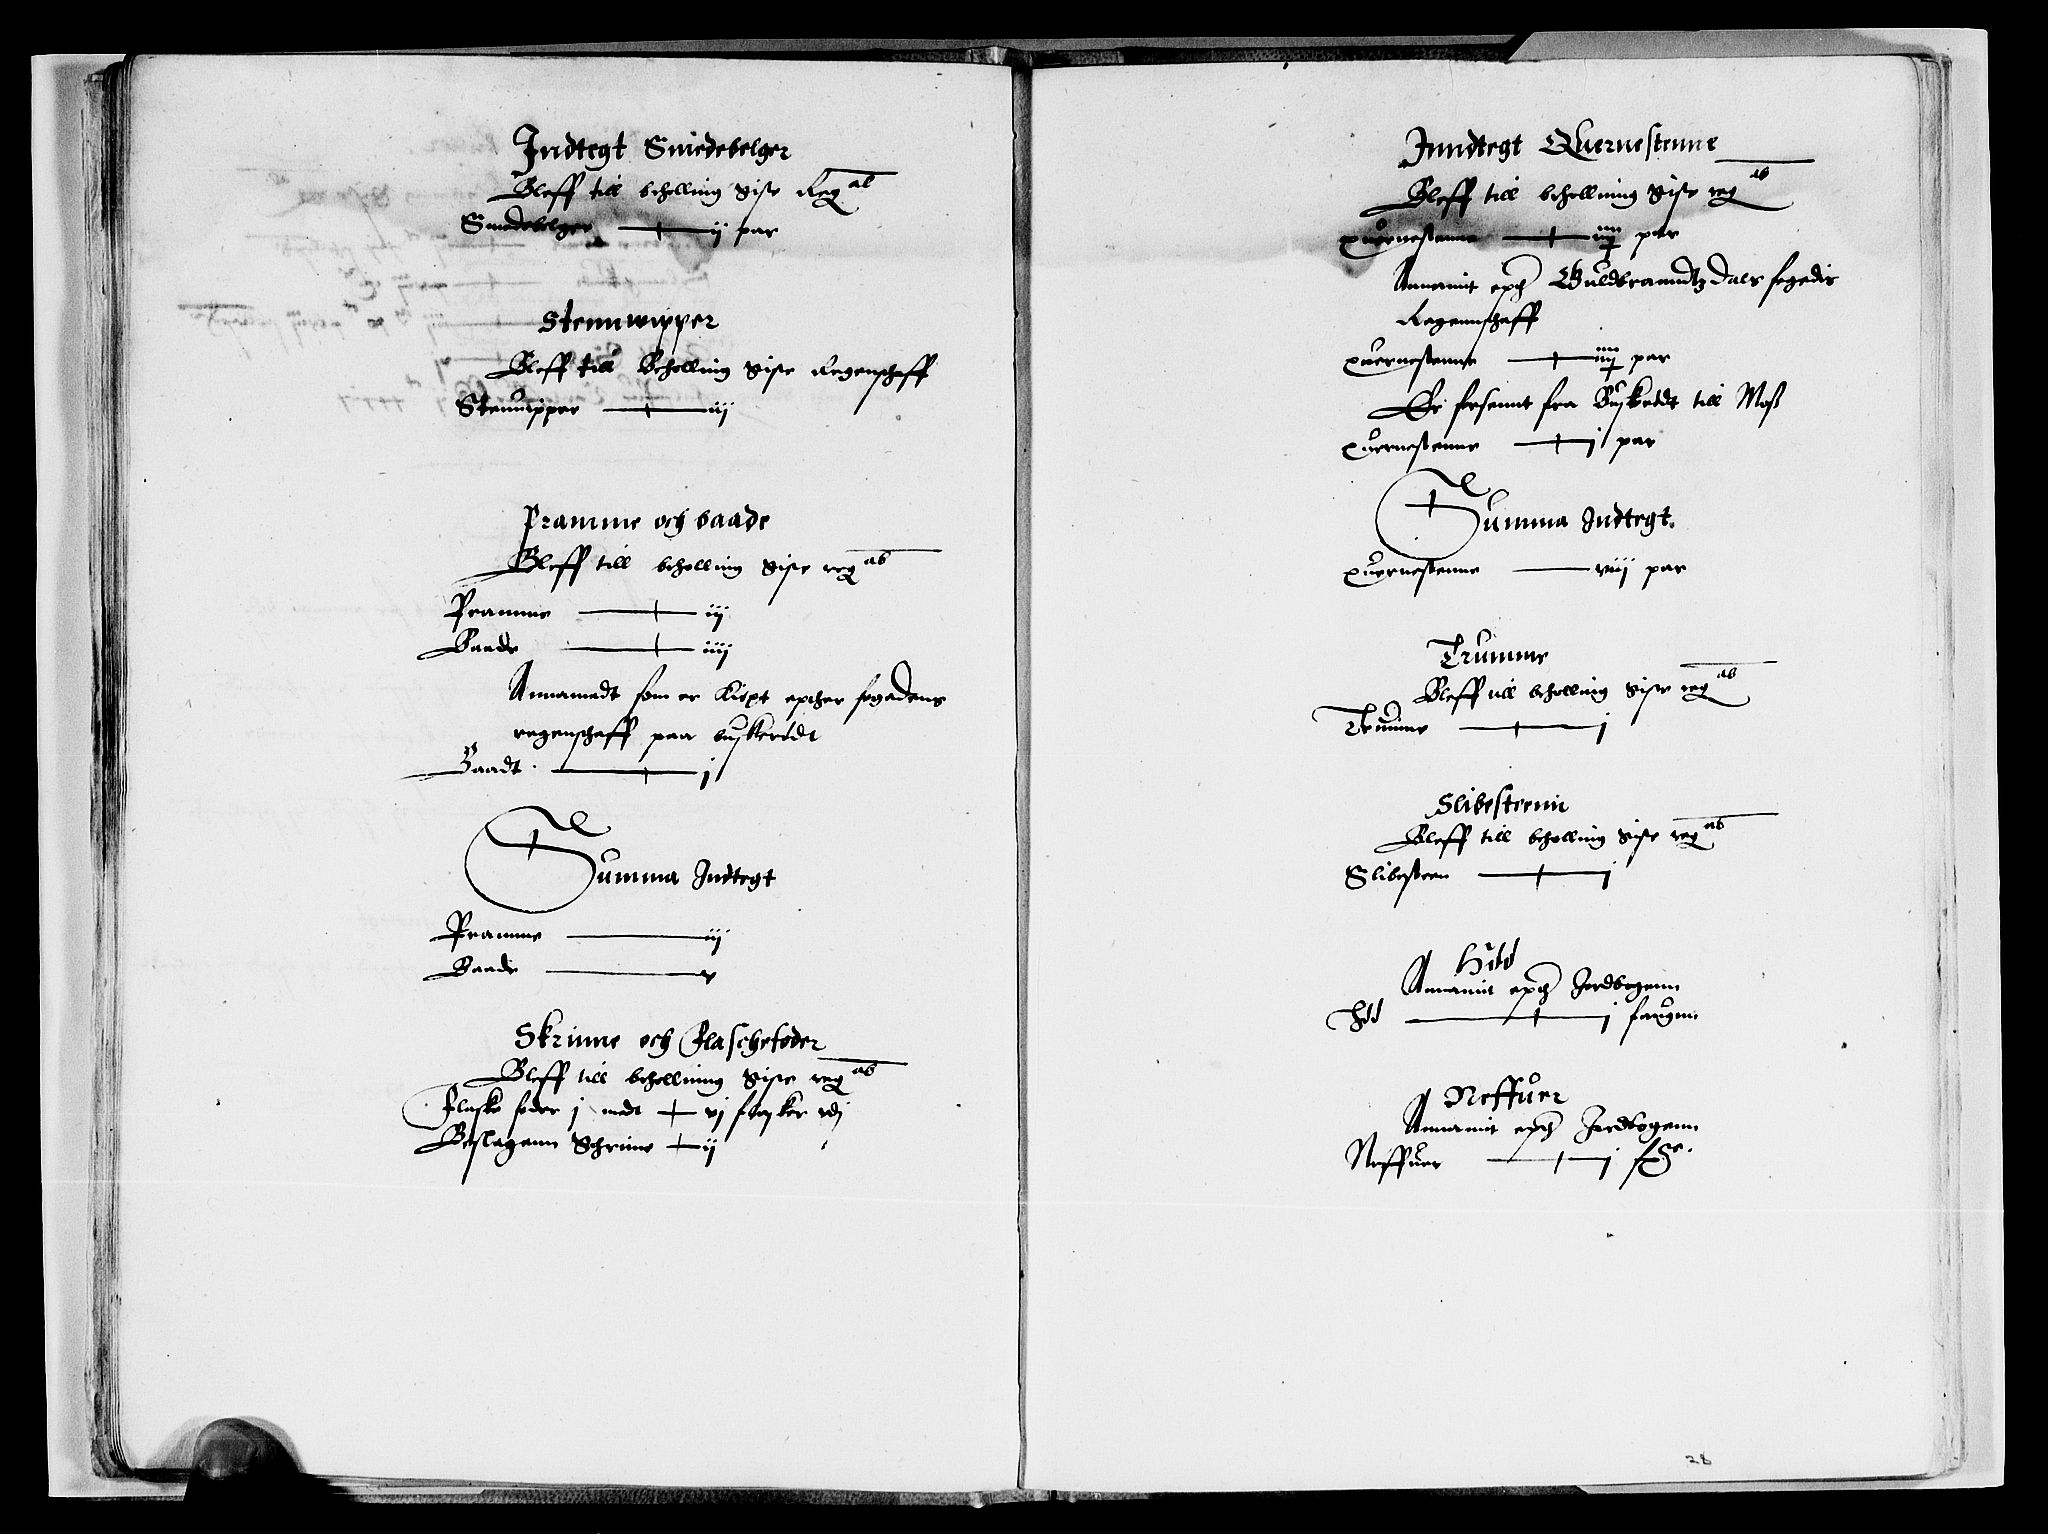 Indtegt Smedebelger
Bleff till beholling Siste Reg ab
Smedebelger ij par
Stennwipper
Bleff till Beholling Siste Regenschaff
Stenuipper iij
Pramme och baade
Bleff till beholling Siste reg ab
Pramme iij
Baade iiij
Annamedt som er Kiøpt epther fogedens
regenschaff paa buskerødt
Baadt j
Summa Indtegt
Pramme iij
Baade v
Skrinne och Flaschefoder
Bleff till behollning Siste reg ab
Flaske foder j medt vj flasker vdj
Beslagenn Schrinne ij
Inndtegt Quernestenne
Bleff till behollning Siste reg ab
quernestenne iiij par
Annamit epth Guldbranndtz Dals fogedis
Regennschaff
quernestenne iiij par
Er forsennt fra Buskerødt till Moß
quernestenne j par
Summa Indtegt.
quernestenne viij par
Trumme
Bleff till beholling Siste reg ab
Trumme j
Slibesteenn
Bleff till beholling Siste reg ab
Slibesteen j
Annamit epth Jordbogenn
j faugn
Neffuer
Annamit epth Jordbogenn
Neffuer j
28